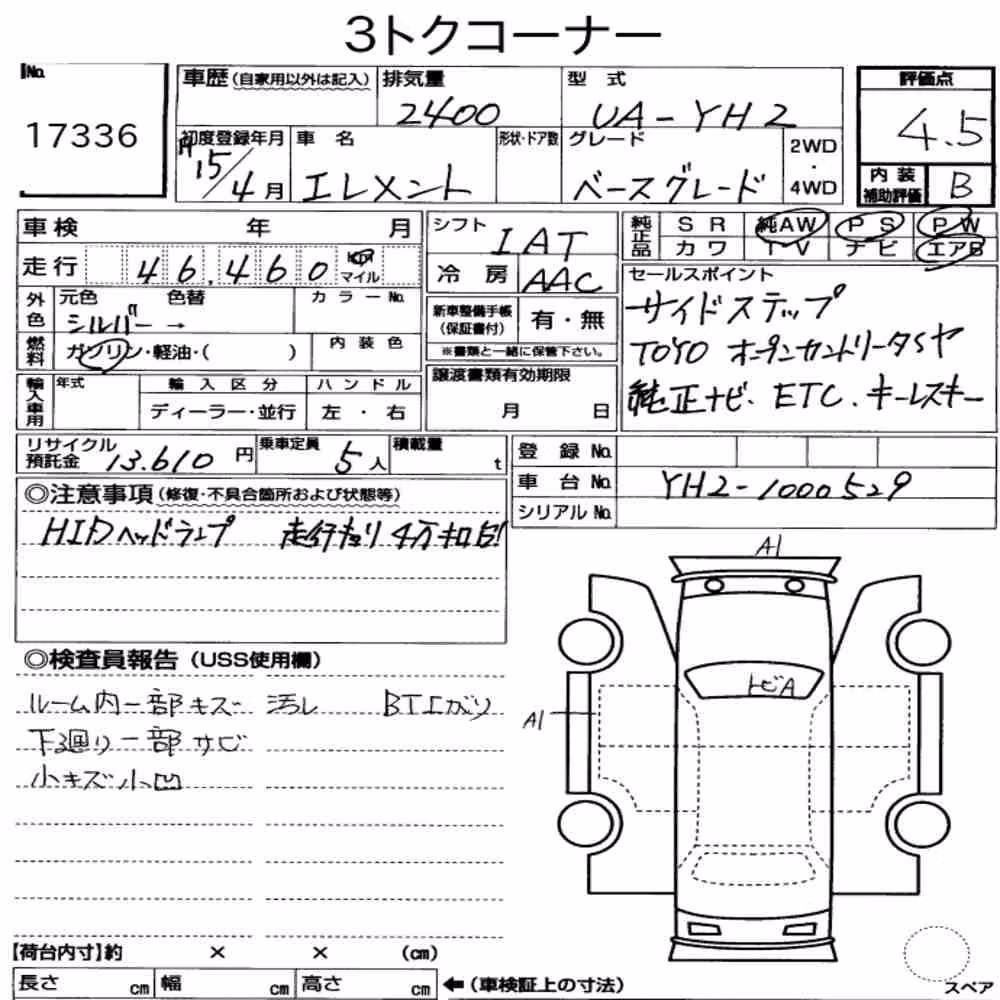 3トクコーナー
No.
17336
車歴(自家用以外は記入)
排気量
2400
型式
UA-YH2
評価点
4.5
初度登録年月
H15/4月
車名
エレメント
形状・ドア数
グレード
ベースグレード
2WD
・
4WD
内装
補助評価
B
車検 年 月
シフト
IAT
純正品
SR 純AW PS PW
カワ TV ナビ エアB
走行 46,460 km マイル
冷房
AAC
セールスポイント
サイドステップ
TOYO オープンカントリータイヤ
純正ナビ. ETC. キーレスキー
外色
元色 色替
シルバー →
カラーNo.
新車整備手帳
(保証書付)
有・無
※書類と一緒に保管下さい。
燃料
ガソリン・軽油・( )
内装色
輸入車用
年式
輸入区分
ハンドル
ディーラー・並行
左・右
譲渡書類有効期限
月 日
リサイクル
預託金 13.610 円
乗車定員
5人
積載量
t
登録No.
車台No. YH2-1000529
シリアルNo.
◎注意事項(修復・不具合箇所および状態等)
HIDヘッドランプ 走行キョリ 4万キロ台!
◎検査員報告(USS使用欄)
ルーム内一部キズ 汚レ BTエガリ
下廻り一部サビ
小キズ小凹
A1
トビA
A1
【荷台内寸】約 × × (cm)
長さ cm 幅 cm 高さ cm
←(車検証上の寸法)
スペア